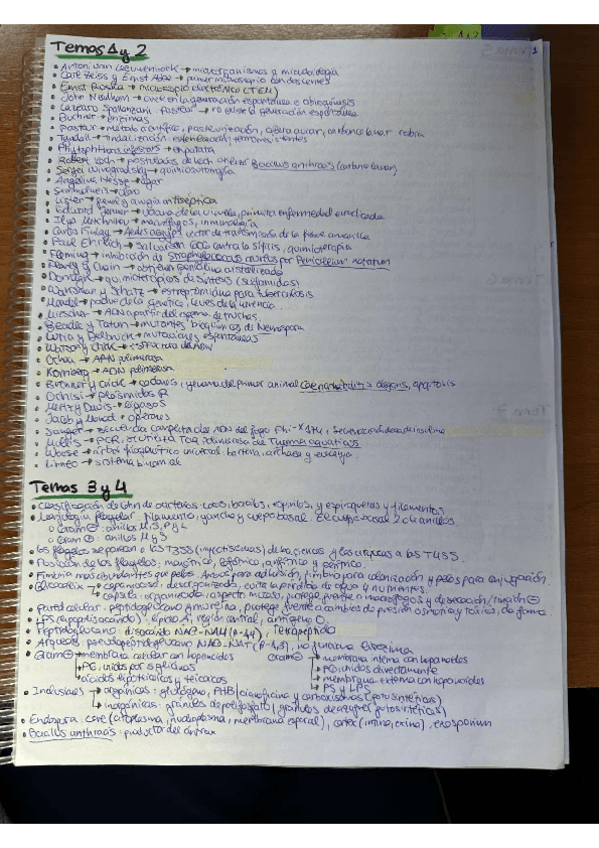 Temas 1 y 2
1
• Antoni van Leeuwenhock → microorganismos y microbiología
• Carl Zeiss y Ernst Abbe → primer microscopio con dos lentes
• Ernst Ruska → microscopio electrónico (TEM)
• John Needham → creer en la generación espontánea o abiogénesis
• Lazzaro Spallanzani, Pasteur → no existe la generación espontánea
• Buchner → enzimas
• Pasteur → método científico, pasteurización, cólera aviar, carbunco y rabia
• Tyndall → tindalización, esterilización, termorresistentes
• Phytophthora infestans → en patata
• Robert Koch → postulados de Koch, Bacillus anthracis
• Sergei Winogradsky → quimioautotrofía
• Angelina Hesse → agar
• Semmelweis → cloro
• Lister → fenol y cirugía antiséptica
• Edward Jenner → vacuna de la viruela, primera enfermedad erradicada
• Ilya Mechnikov → macrófagos, inmunología
• Carlos Finlay → Aedes aegypti vector de transmisión de la fiebre amarilla
• Paul Ehrlich → Salvarsan 606 contra la sífilis, quimioterapia
• Fleming → inhibición de Staphylococcus aureus por Penicillium notatum
• Florey y Chain → obtienen penicilina cristalizada
• Domagk → quimioterápicos de síntesis (sulfamidas)
• Waksman y Schatz → estreptomicina para tuberculosis
• Mendel → padre de la genética, leyes de la herencia
• Miescher → ADN a partir del esperma de truchas
• Beadle y Tatum → mutantes bioquímicos de Neurospora
• Luria y Delbruck → mutaciones espontáneas
• Watson y Crick → estructura del ADN
• Ochoa → ARN polimerasa
• Kornberg → ADN polimerasa
• Brenner y Crick → codones, genoma del primer animal Caenorhabditis elegans, apoptosis
• Ochiai → plásmidos R
• Jacob y Monod → operones
• Sanger → secuencia completa del ADN del fago Phi-X174,
• Mullis → PCR, se utiliza Taq polimerasa de Thermus aquaticus
• Woese → árbol filogenético universal: bacteria, archaea y eucarya
• Linneo → sistema binomial
Temas 3 y 4
• Clasificación de bacterias: cocos, bacilos, espirilos, y espiroquetas y filamentos
• filamento, gancho y cuerpo basal. El cuerpo basal 2 o 4 anillos.
○ Gram ⊖: anillos M, S, P y L
○ Gram ⊕: anillos M y S
• Los flagelos se parecen a los T3SS (inyectisomas)
• Posición de los flagelos: monótrico, lofótrico, anfítrico y perítrico.
• Fimbria más abundantes que pelos. fimbria para colonización y pelos para conjugación
• Glucocálix → capa mucosa: desorganizada, evita la pérdida de agua y nutrientes.
→ cápsula: organizada, aspecto mucoso, protege frente a macrófagos y desecación
• Pared celular: peptidoglucano o mureína, protege frente a cambios de presión osmótica y tóxicos, da forma
• LPS (lipopolisacárido): lípido A, región central, antígeno O
• Peptidoglucano: disacárido NAG-NAM (β-1,4), Tetrapéptido
• Arqueas: pseudopeptidoglucano NAG-NAT (β-1,3), no funciona lisozima
• Gram ⊕ → membrana celular con hopanoides
→ PG, unidos por 5 glicinas
→ ácidos lipoteicoicos y teicoicos
Gram ⊖ → membrana interna con hopanoides
→ PG, unidos directamente
→ membrana externa con hopanoides
→ PS y LPS
• Inclusiones → orgánicas: glucógeno, PHB, cianoficina y carboxisomas (fotosintéticas)
→ inorgánicas: gránulos de polifosfato, gránulos de azufre (fotosintéticas)
• Endospora: core (citoplasma, nucleoplasma, membrana esporal), cortex (intina, exina), exosporium
• Bacillus anthracis: productor del ántrax